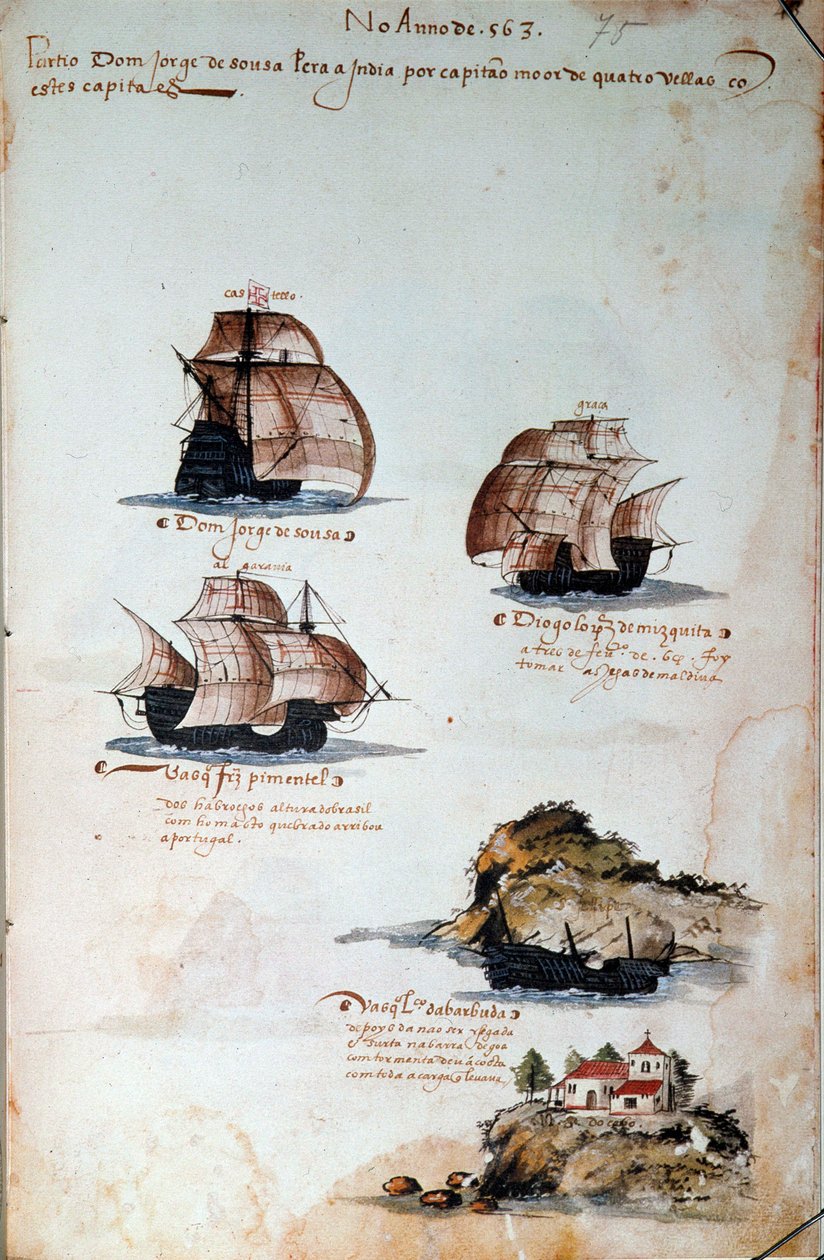 No Anno de . 563 .
75
Partio Dom Jorge de sousa Pera a Jndia por capitão moor de quatro vellas co
estes capitaẽs .
cas tello .
Dom Jorge de sousa
graca
Diogo lopz de mizquita
a tres de feuro. de . 64 . foy
tomar as Jlhas de maldiva
al garavia
Vasqo frz pimentel
dos habrolhos altura do brasil
com ho masto quebrado arribou
a portugal .
s fellipe
Vasqo Lco. dabarbuda
depoys da nao ser chegada
e surta na barra de goa
com tormenta deu á costa
com toda a carga q̃ levava
N. Sa. do cabo .